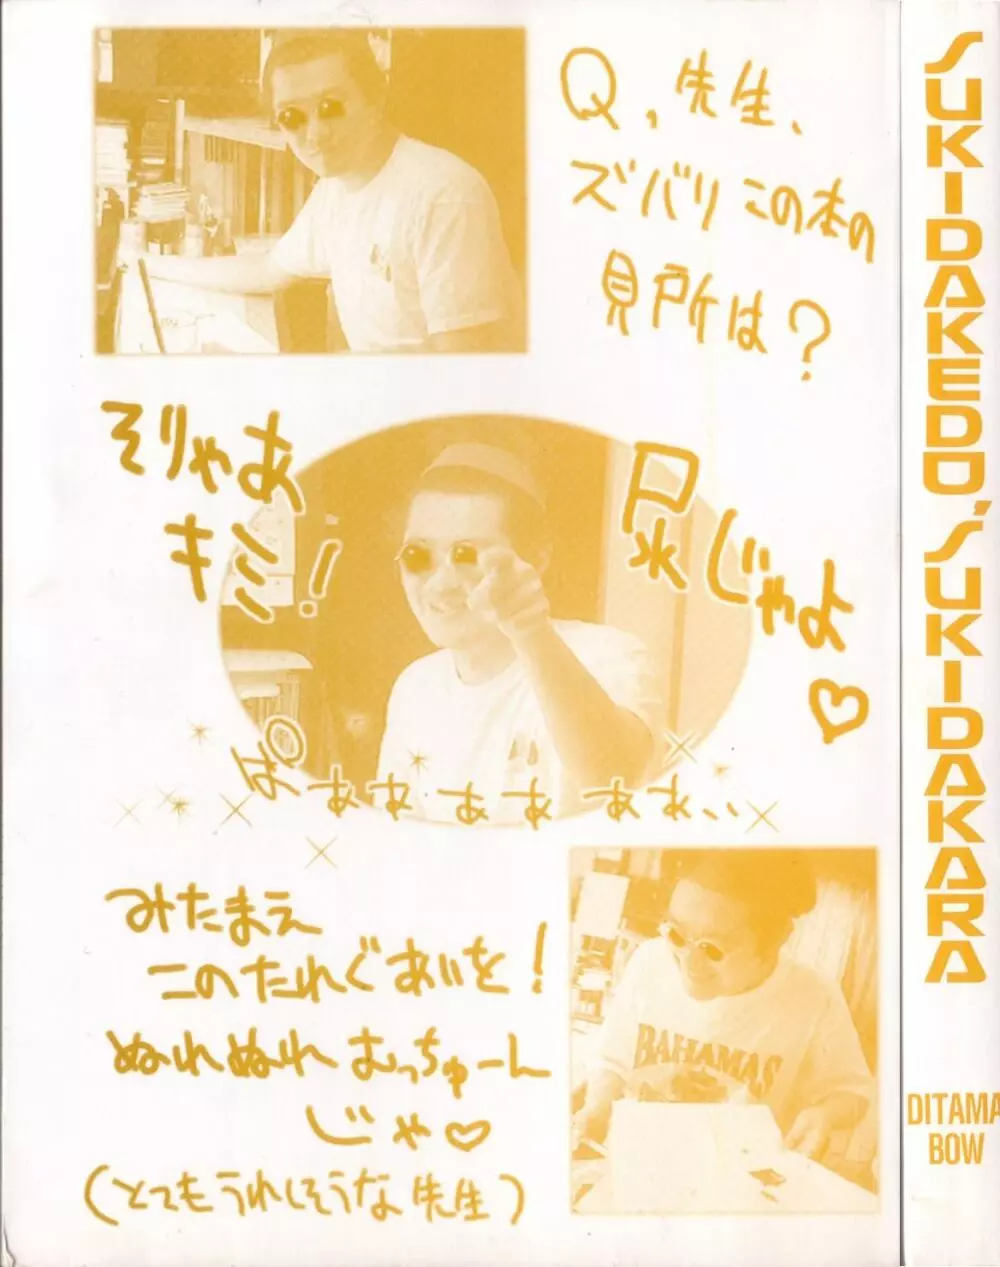 Q、先生、
ズバリこの本の
見所は?
そりゃあ
キミ!
尿じゃよ♡
ぱぁぁぁぁぁぁ、、
みたまえ
このたれぐあいを!
ぬれぬれむっちゅーん
じゃ♡
(とてもうれしそうな先生)
BAHAMAS
SUKIDAKEDO, SUKIDAKARA
DITAMA
BOW